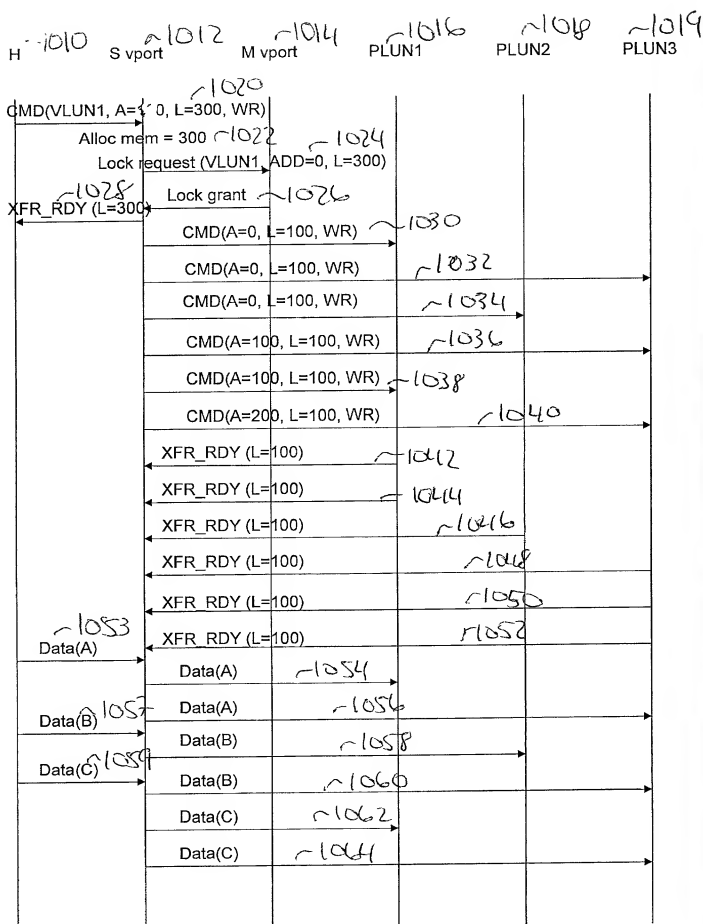 H ~1010 S vport ~1012 M vport ~1014 PLUN1 ~1016 PLUN2 ~1018 PLUN3 ~1019
~1020
CMD(VLUN1, A= 0, L=300, WR)
Alloc mem = 300 ~1022
~1024
Lock request (VLUN1, ADD=0, L=300)
~1028
Lock grant ~1026
XFR_RDY (L=300)
CMD(A=0, L=100, WR) ~1030
CMD(A=0, L=100, WR) ~1032
CMD(A=0, L=100, WR) ~1034
CMD(A=100, L=100, WR) ~1036
CMD(A=100, L=100, WR) ~1038
CMD(A=200, L=100, WR) ~1040
XFR_RDY (L=100) ~1042
XFR_RDY (L=100) ~1044
XFR_RDY (L=100) ~1046
XFR_RDY (L=100) ~1048
XFR_RDY (L=100) ~1050
~1053
XFR_RDY (L=100) ~1052
Data(A)
Data(A) ~1054
Data(A) ~1056
Data(B) ~1057
Data(B) ~1058
Data(C) ~1059
Data(B) ~1060
Data(C) ~1062
Data(C) ~1064